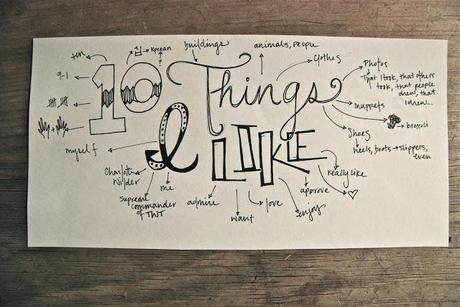 10 Things
I LIKE
ten
Korean
9-1
myself
Charlotte
Supreme
commander
of TWT
me
buildings
animals, people
Clothes
Photos
That I took, that others
took, that people
drew, that
I drew...
muppets
broccoli
Shoes
heels, boots → slippers,
even
really like
approve
enjoy
love
want
admire